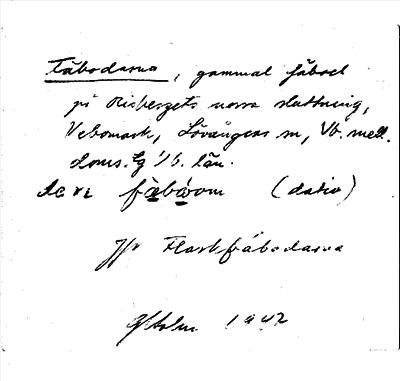 Fäbodarna, gammal fäbod
på Risbergets norra sluttning,
Vebomark, Lövångers sn, Vb. mell.
doms. tg Vb. län.
fäbóvom (dativ)
Jfr Flarkfäbodarna
Holm 1942